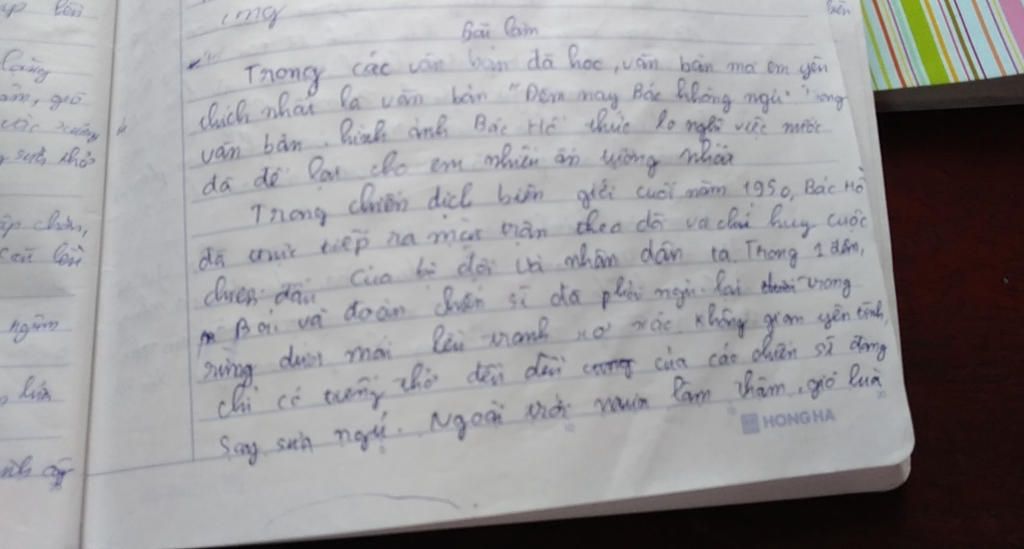 Bài làm
Trong các văn bản đã học, văn bản mà em yêu
thích nhất là văn bản "Đêm nay Bác không ngủ" Trong
văn bản, hình ảnh Bác Hồ thức lo nghĩ việc nước
đã để lại cho em nhiều ấn tượng nhất
Trong chiến dịch biên giới cuối năm 1950, Bác Hồ
đã trực tiếp ra mặt trận theo dõi và chỉ huy cuộc
chiến đấu của bộ đội và nhân dân ta. Trong 1 đêm,
Bác và đoàn chiến sĩ đã phải ngủ lại trong
rừng dưới mái lều tranh xơ xác không gian yên tĩnh,
chỉ có tiếng thở đều đều của các chiến sĩ đang
say sưa ngủ. Ngoài trời mưa lâm thâm, gió luà
HONG HA
ập chân,
ngắm